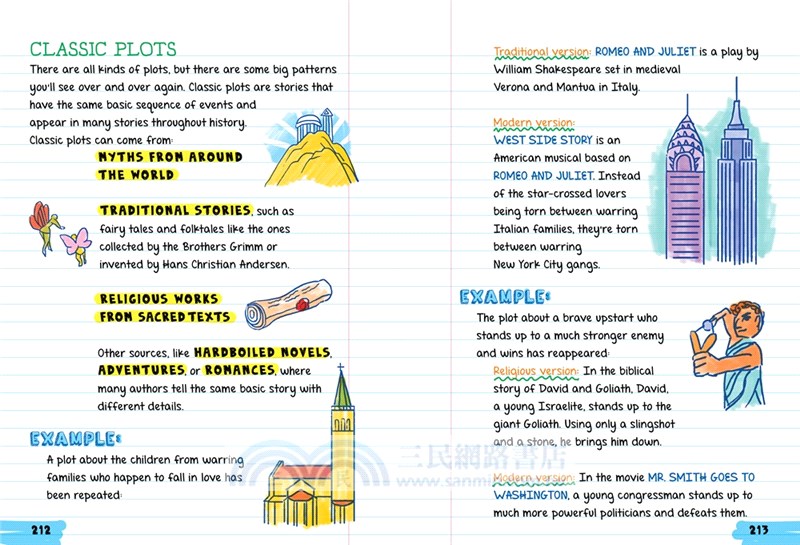 CLASSIC PLOTS
There are all kinds of plots, but there are some big patterns
you'll see over and over again. Classic plots are stories that
have the same basic sequence of events and
appear in many stories throughout history.
Classic plots can come from:
MYTHS FROM AROUND
THE WORLD
TRADITIONAL STORIES, such as
fairy tales and folktales like the ones
collected by the Brothers Grimm or
invented by Hans Christian Andersen.
RELIGIOUS WORKS
FROM SACRED TEXTS
Other sources, like HARDBOILED NOVELS,
ADVENTURES, or ROMANCES, where
many authors tell the same basic story with
different details.
EXAMPLE:
A plot about the children from warring
families who happen to fall in love has
been repeated:
212
Traditional version: ROMEO AND JULIET is a play by
William Shakespeare set in medieval
Verona and Mantua in Italy.
Modern version:
WEST SIDE STORY is an
American musical based on
ROMEO AND JULIET. Instead
of the star-crossed lovers
being torn between warring
Italian families, they're torn
between warring
New York City gangs.
EXAMPLE:
The plot about a brave upstart who
stands up to a much stronger enemy
and wins has reappeared:
Religious version: In the biblical
story of David and Goliath, David,
a young Israelite, stands up to the
giant Goliath. Using only a slingshot
and a stone, he brings him down.
Modern version: In the movie MR. SMITH GOES TO
WASHINGTON, a young congressman stands up to
much more powerful politicians and defeats them.
213
三民網路書店